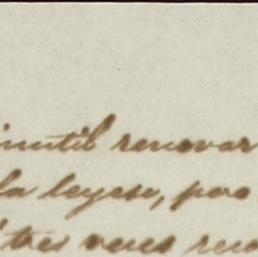 inutil renovar
la leyese, por
tres veces